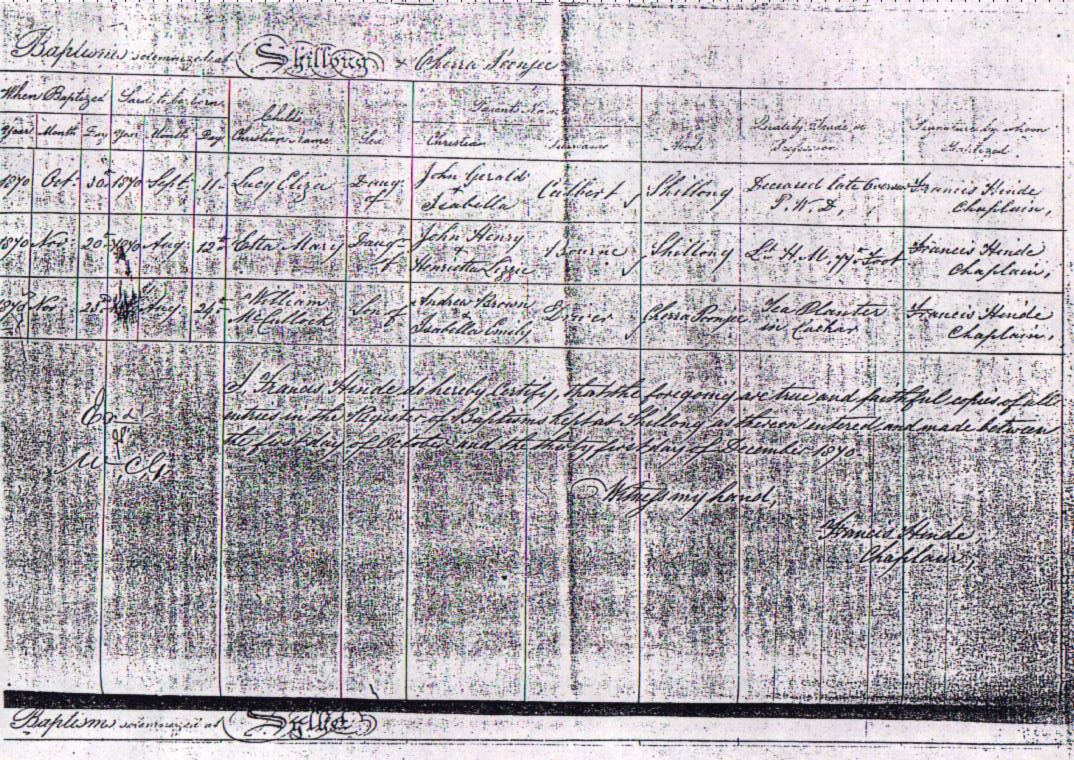 Baptisms solemnized at Shillong & Cherra Poonjee
When Baptized Said to be born Child's Christian Name Sex Parents Name Abod Quality, Trade, or Profession Signature by whom Baptized.
Year Month Day Year Month Day Christian Surname
1870 Oct. 30th 1870 Sept. 11th Lucy Eliza Daug. of John Gerald + Isabella Cuthbert Shillong Deceased late Overseer P.W.D, Francis Hinde Chaplain,
1870 Nov. 20th 1870 Aug. 12th Etta Mary Daug. of John Henry + Henrietta Lizzie Bourne Shillong Lt. H.M. 77th Foot Francis Hinde Chaplain,
1870 Nov. 28th Aug. 24th William McCullock Son of Andrew Brown + Isabella Emily Cherra Poonjee Tea Planter in Cachar Francis Hinde Chaplain,
I Francis Hinde do hereby certify, that the foregoing are true and faithful copies of all
entries in the Register of Baptisms kept at Shillong as thereon entered and made between
the first day of October and the thirty first day of December 1870.
Exd
Witness my hand,
Francis Hinde
Chaplain,
Baptisms solemnized at